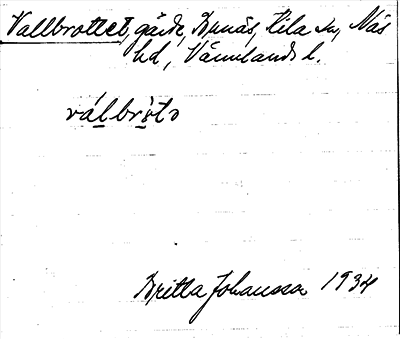 Vallbrottet, gärde, Brunäs, Kila sn, Näs
hd, Värmlands l.
válbròtə
Britta Johansson 1934